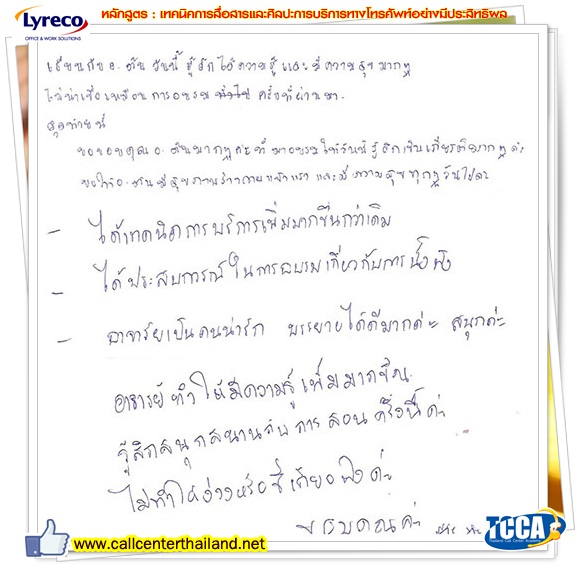 Lyreco
OFFICE & WORK SOLUTIONS
หลักสูตร : เทคนิคการสื่อสารและศิลปะการบริการทางโทรศัพท์อย่างมีประสิทธิผล
เรียนกับ อ. วันนี้ รู้สึกได้ความรู้และมีความสุขมากๆ
ไม่น่าเบื่อเหมือนการอบรม ครั้งที่ผ่านมา.
สุดท้ายนี้
ขอขอบคุณ อ. มากๆค่ะที่มาอบรมให้วันนี้รู้สึกเป็นเกียรติมากๆค่ะ
ขอให้ อ. มีสุขภาพร่างกายแข็งแรง และมีความสุขทุกๆวันไปค่ะ
- ได้เทคนิคการบริการเพิ่มมากขึ้นกว่าเดิม
- ได้ประสบการณ์ในการอบรมเกี่ยวกับการนั่งฟัง
- อาจารย์เป็นคนน่ารัก บรรยายได้ดีมากค่ะ สนุกค่ะ
อาจารย์ทำให้มีความรู้เพิ่มมากขึ้น
รู้สึกสนุกสนานกับการสอนครั้งนี้ค่ะ
ไม่ทำให้ง่วงหรือขี้เกียจฟังค่ะ
ขอบคุณค่ะ
www.callcenterthailand.net
TCCA
Thailand Call Center Academy